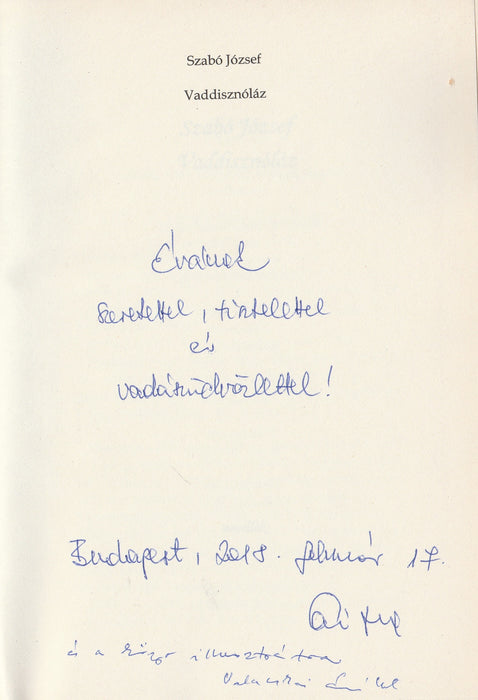 Szabó József
Vaddisznóláz
Szabó József
Vaddisznóláz
Évának
szeretettel, tisztelettel
és
vadászüdvözlettel!
Budapest, 2018. február 17.
és a könyv illusztrátora